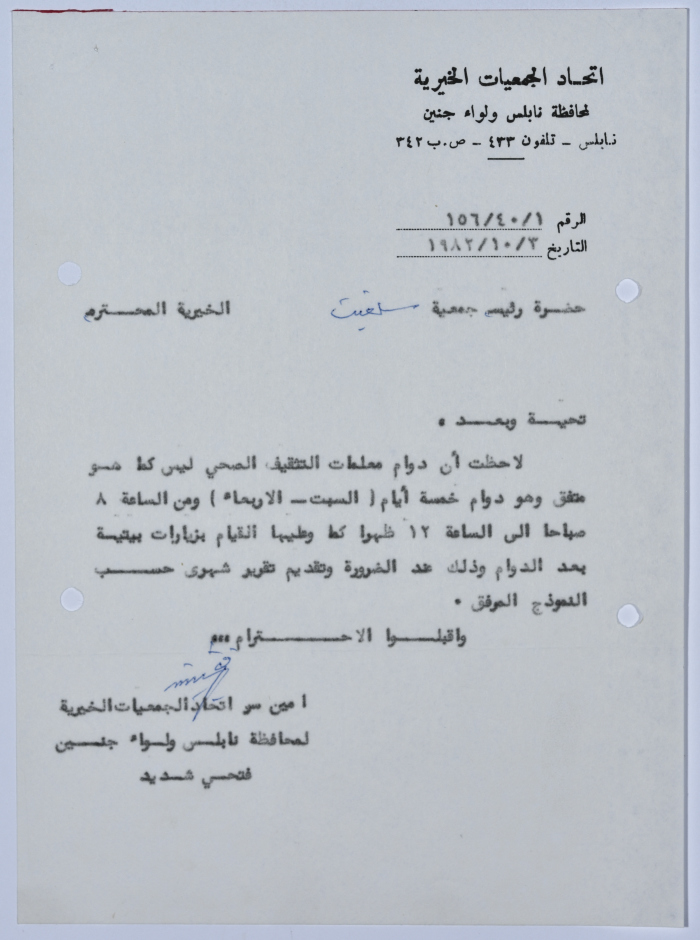 اتحاد الجمعيات الخيرية
لمحافظة نابلس ولواء جنين
نابلس - تلفون ٤٣٣ - ص.ب ٣٤٢
الرقم ١٥٦/٤٠/١
التاريخ ١٩٨٢/١٠/٣
حضرة رئيس جمعية سلفيت الخيرية المحترم
تحية وبعد ،
لاحظت أن دوام معلمات التثقيف الصحي ليس كما هو
متفق وهو دوام خمسة أيام ( السبت - الاربعاء ) ومن الساعة ٨
صباحا الى الساعة ١٢ ظهرا كما وعليها القيام بزيارات بيتية
بعد الدوام وذلك عند الضرورة وتقديم تقرير شهرى حسب
النموذج الموفق .
واقبلوا الاحترام ،،،
امين سر اتحاد الجمعيات الخيرية
لمحافظة نابلس ولواء جنين
فتحي شديد